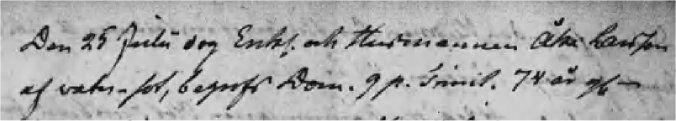 Den 25 Julii dog Enkl. och Husmannen Åke Larsson
af watu-sot, begrofs Dom. 9 p. Trinit. 74 år g/–